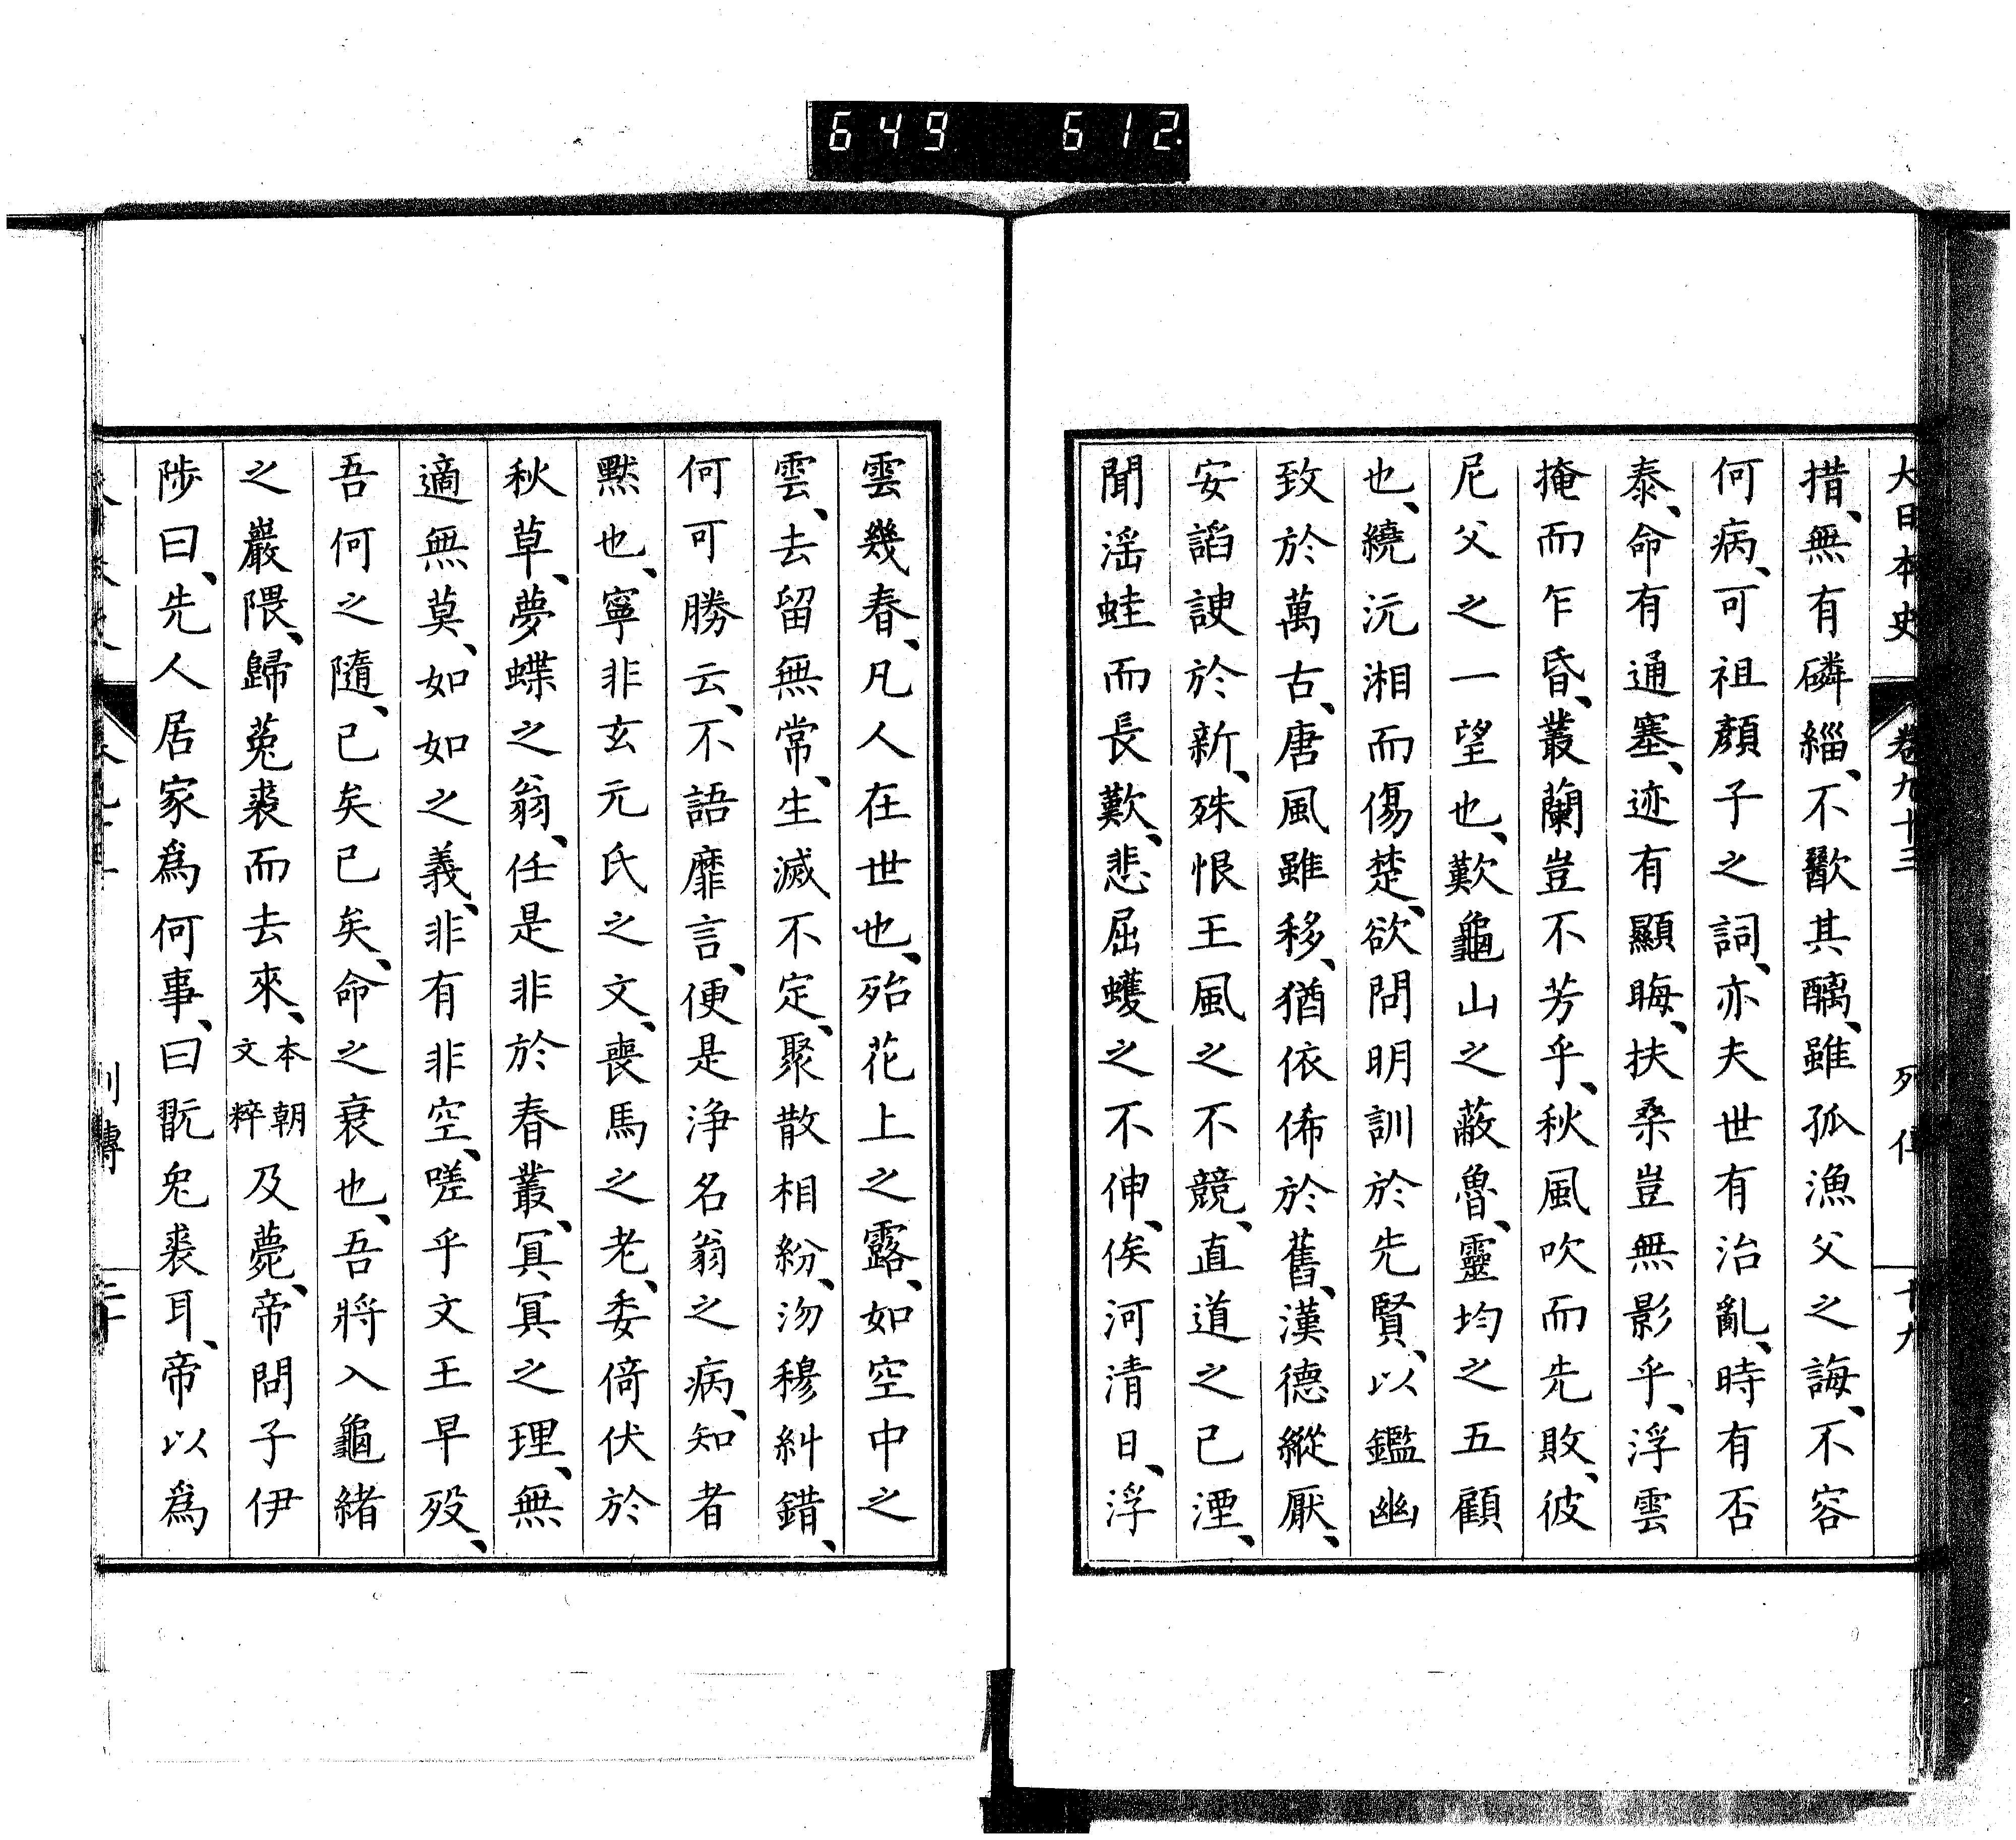 649 612
大日本史 卷九十三 列傳 十九
措、無有磷緇、不歠其醨、雖孤漁父之誨、不容
何病、可祖顏子之詞、亦夫世有治亂、時有否
泰、命有通塞、迹有顯晦、扶桑豈無影乎、浮雲
掩而乍昏、叢蘭豈不芳乎、秋風吹而先敗、彼
尼父之一望也、歎龜山之蔽魯、靈均之五顧
也、繞沅湘而傷楚、欲問明訓於先賢、以鑑幽
致於萬古、唐風雖移、猶依俙於舊、漢德縱厭、
安謟諛於新、殊恨王風之不競、直道之已湮、
聞滛蛙而長歎、悲屈蠖之不伸、俟河清日、浮
雲幾春、凡人在世也、殆花上之露、如空中之
雲、去留無常、生滅不定、聚散相紛、沕穆糾錯、
何可勝云、不語靡言、便是浄名翁之病、知者
默也、寧非玄元氏之文、喪馬之老、委倚伏於
秋草、夢蝶之翁、任是非於春叢、冥冥之理、無
適無莫、如如之義、非有非空、嗟乎文王早歿、
吾何之隨、已矣已矣、命之衰也、吾將入龜緒
之巖隈、歸菟裘而去來、本朝文粹及薨、帝問子伊
陟曰、先人居家爲何事、曰翫兔裘耳、帝以爲
列傳 二十